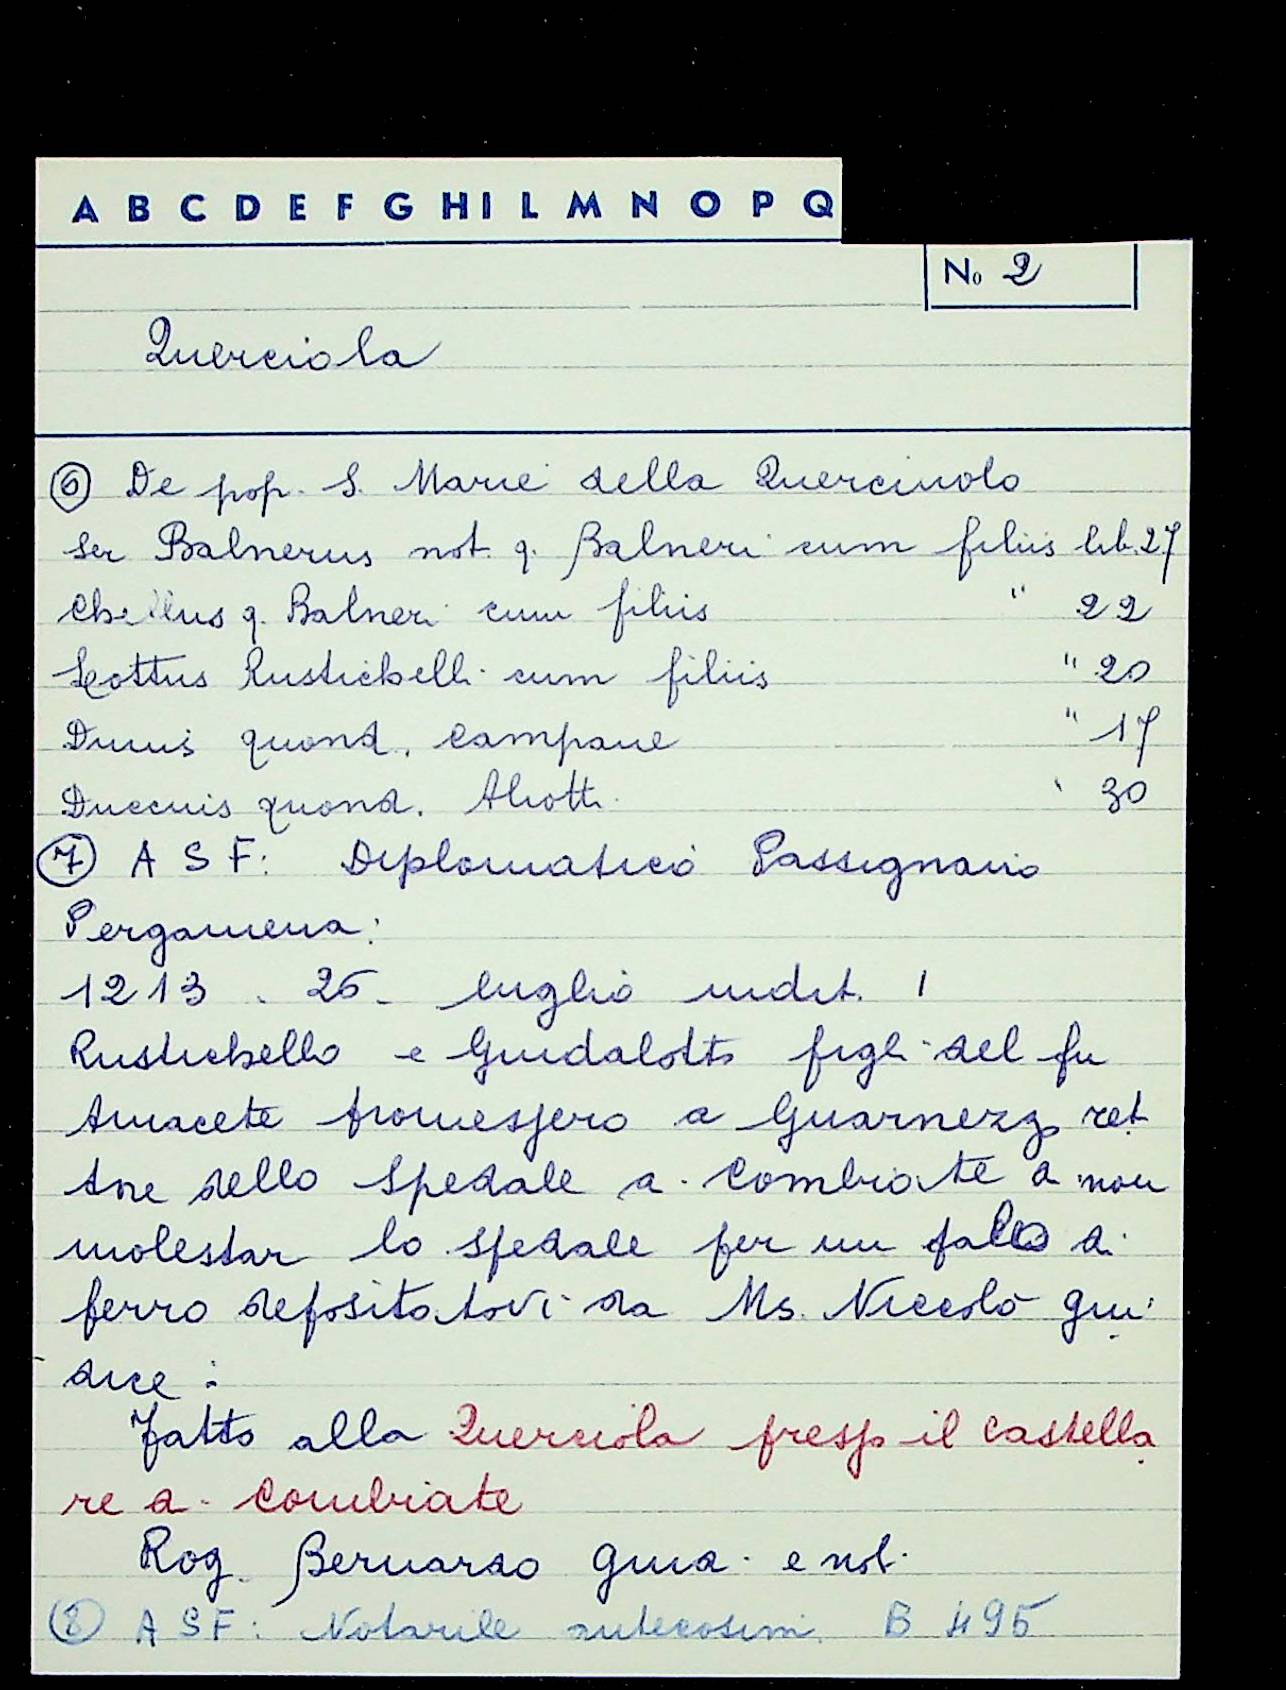 A B C D E F G H I L M N O P Q
No 2
Querciola
⑥ De pop. S. Marie della Querciuola
Ser Balnerus not. q. Balneri cum filiis lib. 27
Chellus q. Balneri cum filiis " 22
Scottus Rustichelli cum filiis " 20
quond. Campane " 17
Duccius quond. Aliotti " 30
⑦ A S F: Diplomatico Passignano
Pergamena:
1213 - 26 - luglio indit. 1
Rustichello e Guidalotto figli del fu
promessero a ret
tore dello Spedale di Combiate di non
molestar lo spedale per un di
ferro depositatovi da Ms. Niccolò giu
dice:
Fatto alla Querciola presso il castella
re di Combiate
Rog. Bernardo giud. e not.
⑧ A S F: Notarile antecosim. B 495